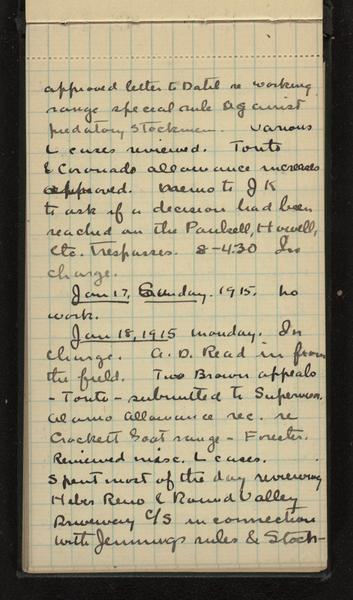 approved letter to Datil re working
range special rule against
predatory stockmen. Various
L cases reviewed. Tonto
& Coronado allowance increases
approved. Memo to J K
to ask if a decision had been
reached on the Pankell, Howell,
Etc. Trespasses. 8-4:30 In
charge.
Jan 17, Sunday. 1915. No
work.
Jan 18, 1915 Monday. In
charge. A. D. Read in from
the field. Two Brown appeals
- Tonto - submitted to Supervisor.
Alamo allowance rec. re
Crockett Goat range - Forester.
Reviewed misc. L cases.
Spent most of the day reviewing
Heber Reno & Round Valley
Driveway C/S in connection
with Jennings rules & Stock-